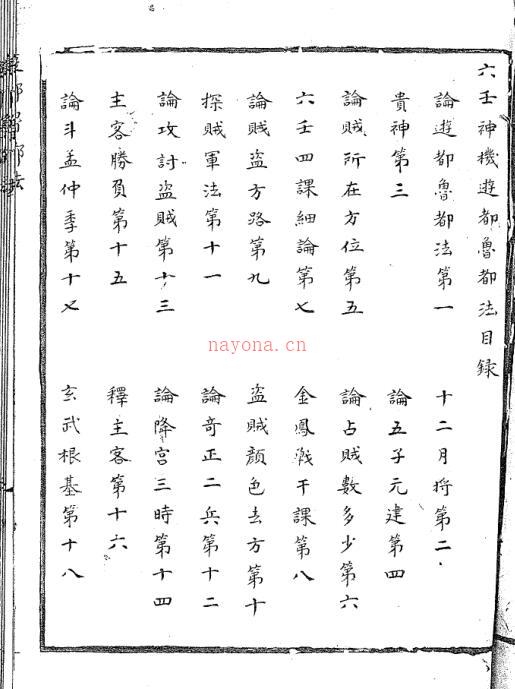 六壬神機遊都魯都法目録
論遊都魯都法第一　十二月將第二
貴神第三　論五子元建第四
論賊所在方位第五　論占賊數多少第六
六壬四課細論第七　金鳳戰干課第八
論賊盜方路第九　盜賊顔色去方第十
探賊軍法第十一　論奇正二兵第十二
論攻討盜賊第十三　論降宫三時第十四
主客勝負第十五　釋主客第十六
論斗孟仲季第十七　玄武根基第十八
nayona.cn